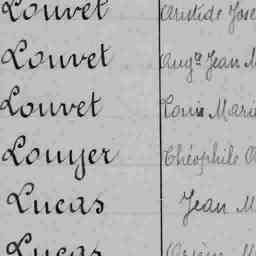 Louvet Aristide Jose
Louvet Aug.te Jean M
Louvet Louis Marie
Louyer Théophile A
Lucas Jean M
Lucas Arsène M